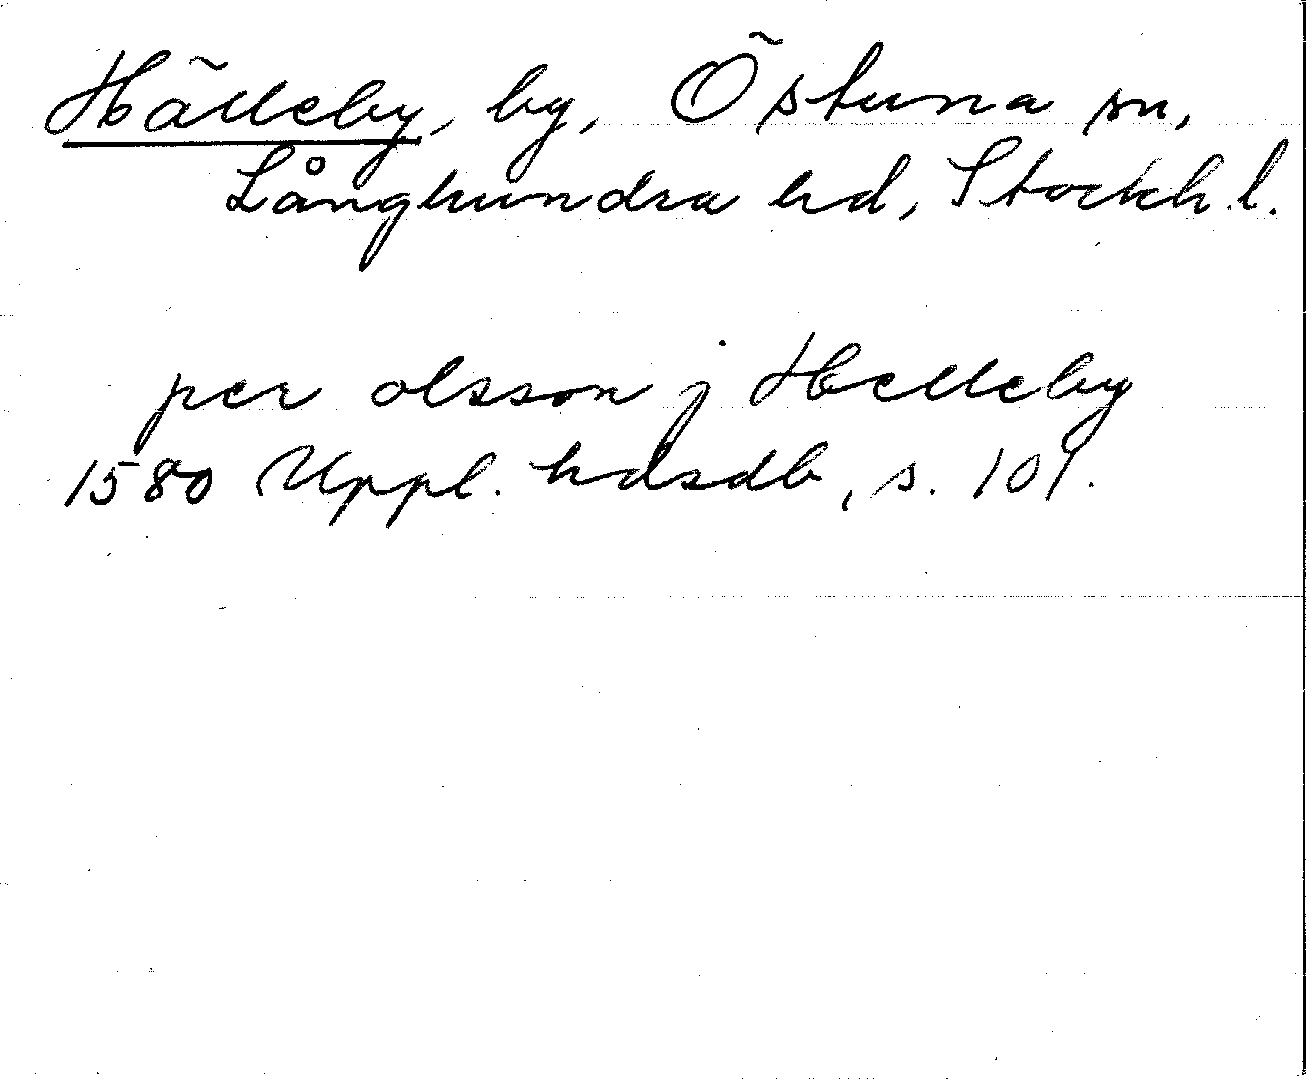 Hälleby, by, Östuna sn,
Långhundra hd, Stockh.l.
per olsson j Helleby
1580 Uppl. hdsdb, s. 101.